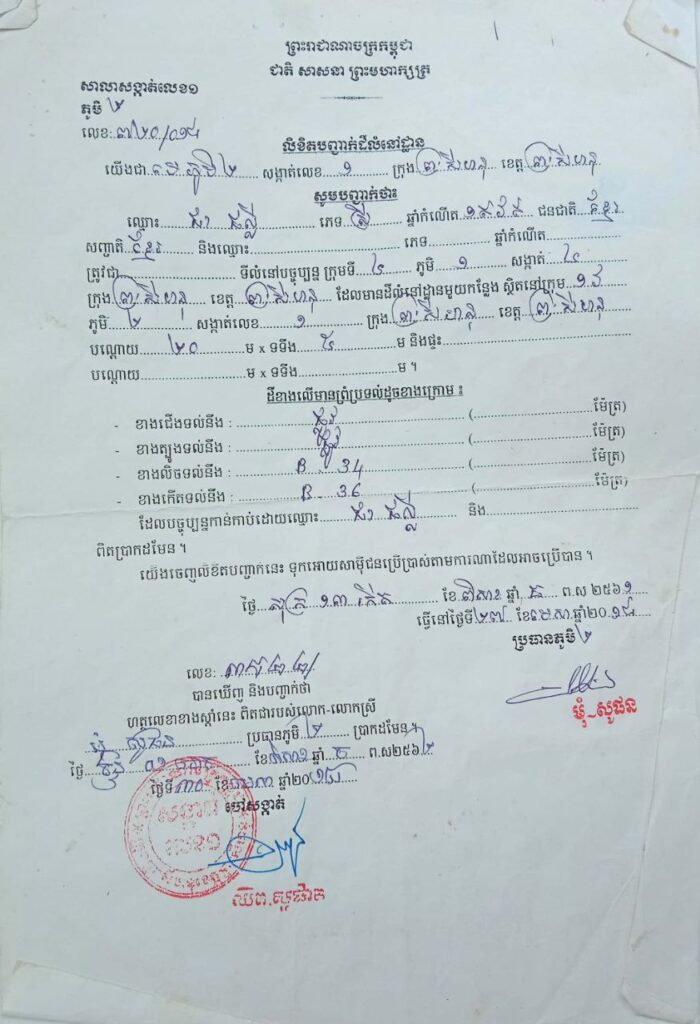 ព្រះរាជាណាចក្រកម្ពុជា
ជាតិ សាសនា ព្រះមហាក្សត្រ
សាលាសង្កាត់លេខ១
ភូមិ ២
លេខ: ៧២០/០១៨
លិខិតបញ្ជាក់ដីលំនៅដ្ឋាន
យើងជា មេភូមិ ២ សង្កាត់លេខ ១ ក្រុង ព្រះសីហនុ ខេត្ត ព្រះសីហនុ
សូមបញ្ជាក់ថា៖
ឈ្មោះ ភេទ ស្រី ឆ្នាំកំណើត ១៩៦៩ ជនជាតិ ខ្មែរ
សញ្ជាតិ ខ្មែរ និងឈ្មោះ ភេទ ឆ្នាំកំណើត
ត្រូវជា ទីលំនៅបច្ចុប្បន្ន ក្រុមទី ភូមិ ១ សង្កាត់ ៤
ក្រុង ព្រះសីហនុ ខេត្ត ព្រះសីហនុ ដែលមានដីលំនៅដ្ឋានមួយកន្លែង ស្ថិតនៅក្រុម ១៦
ភូមិ ២ សង្កាត់លេខ ១ ក្រុង ព្រះសីហនុ ខេត្ត ព្រះសីហនុ
បណ្តោយ ២០ ម x ទទឹង ម និងផ្ទះ
បណ្តោយ ម x ទទឹង ម ។
ដីខាងលើមានព្រំប្រទល់ដូចខាងក្រោម ៖
- ខាងជើងទល់នឹង : ផ្លូវ ( ម៉ែត្រ)
- ខាងត្បូងទល់នឹង : ផ្លូវ ( ម៉ែត្រ)
- ខាងលិចទល់នឹង : B - 34 ( ម៉ែត្រ)
- ខាងកើតទល់នឹង : B - 36 ( ម៉ែត្រ)
ដែលបច្ចុប្បន្នកាន់កាប់ដោយឈ្មោះ និង
ពិតប្រាកដមែន ។
យើងចេញលិខិតបញ្ជាក់នេះ ទុកអោយសាម៉ីជនប្រើប្រាស់តាមការណាដែលអាចប្រើបាន ។
ថ្ងៃ សុក្រ ១៣ កើត ខែ ពិសាខ ឆ្នាំ ច ព.ស ២៥៦១
ធ្វើនៅថ្ងៃទី ២៧ ខែ មេសា ឆ្នាំ២០ ១៨
ប្រធានភូមិ ២
លេខ:
បានឃើញ និងបញ្ជាក់ថា
ហត្ថលេខាខាងស្តាំនេះ ពិតជារបស់លោក-លោកស្រី
មុំ សូផន ប្រធានភូមិ ២ ប្រាកដមែន។
ថ្ងៃ ពុធ ខែ ពិសាខ ឆ្នាំ ច ព.ស២៥៦២
ថ្ងៃទី ៣០ ខែ ឆ្នាំ២០ ១៨
ចៅសង្កាត់
មុំ-សូផន
សង្កាត់
លេខ១